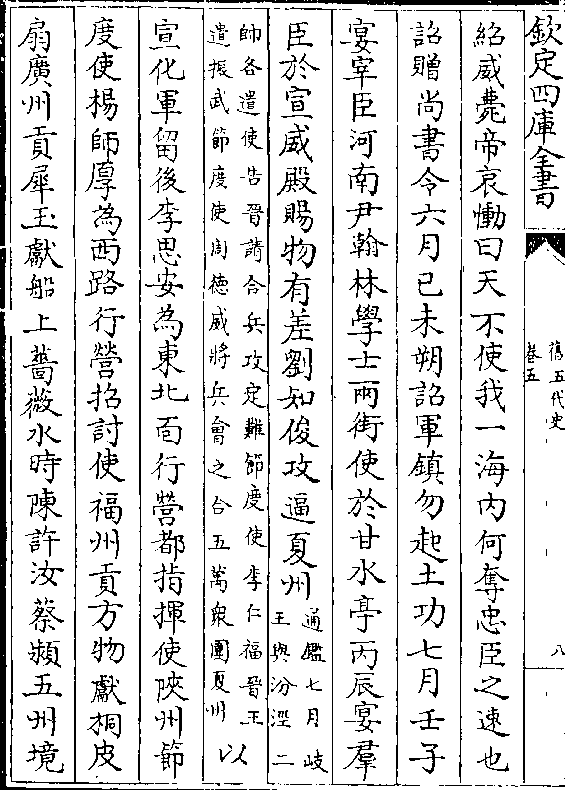 欽定四庫全書
舊五代史
卷五
八
紹威薨帝哀慟曰天不使我一海内何奪忠臣之速也
詔贈尚書令六月己未朔詔軍鎮勿起土功七月壬子
宴宰臣河南尹翰林學士兩街使於甘水亭丙辰宴羣
臣於宣威殿賜物有差劉知俊攻逼夏州
通鑑七月岐
王與汾涇二
帥各遣使告晉請合兵攻定難節度使李仁福晉王
遣振武節度使周德威將兵會之合五萬衆圍夏州
以
宣化軍留後李思安為東北面行營都指揮使陜州節
度使楊師厚為西路行營招討使福州貢方物獻桐皮
扇廣州貢犀玉獻船上薔薇水時陳許汝蔡潁五州境